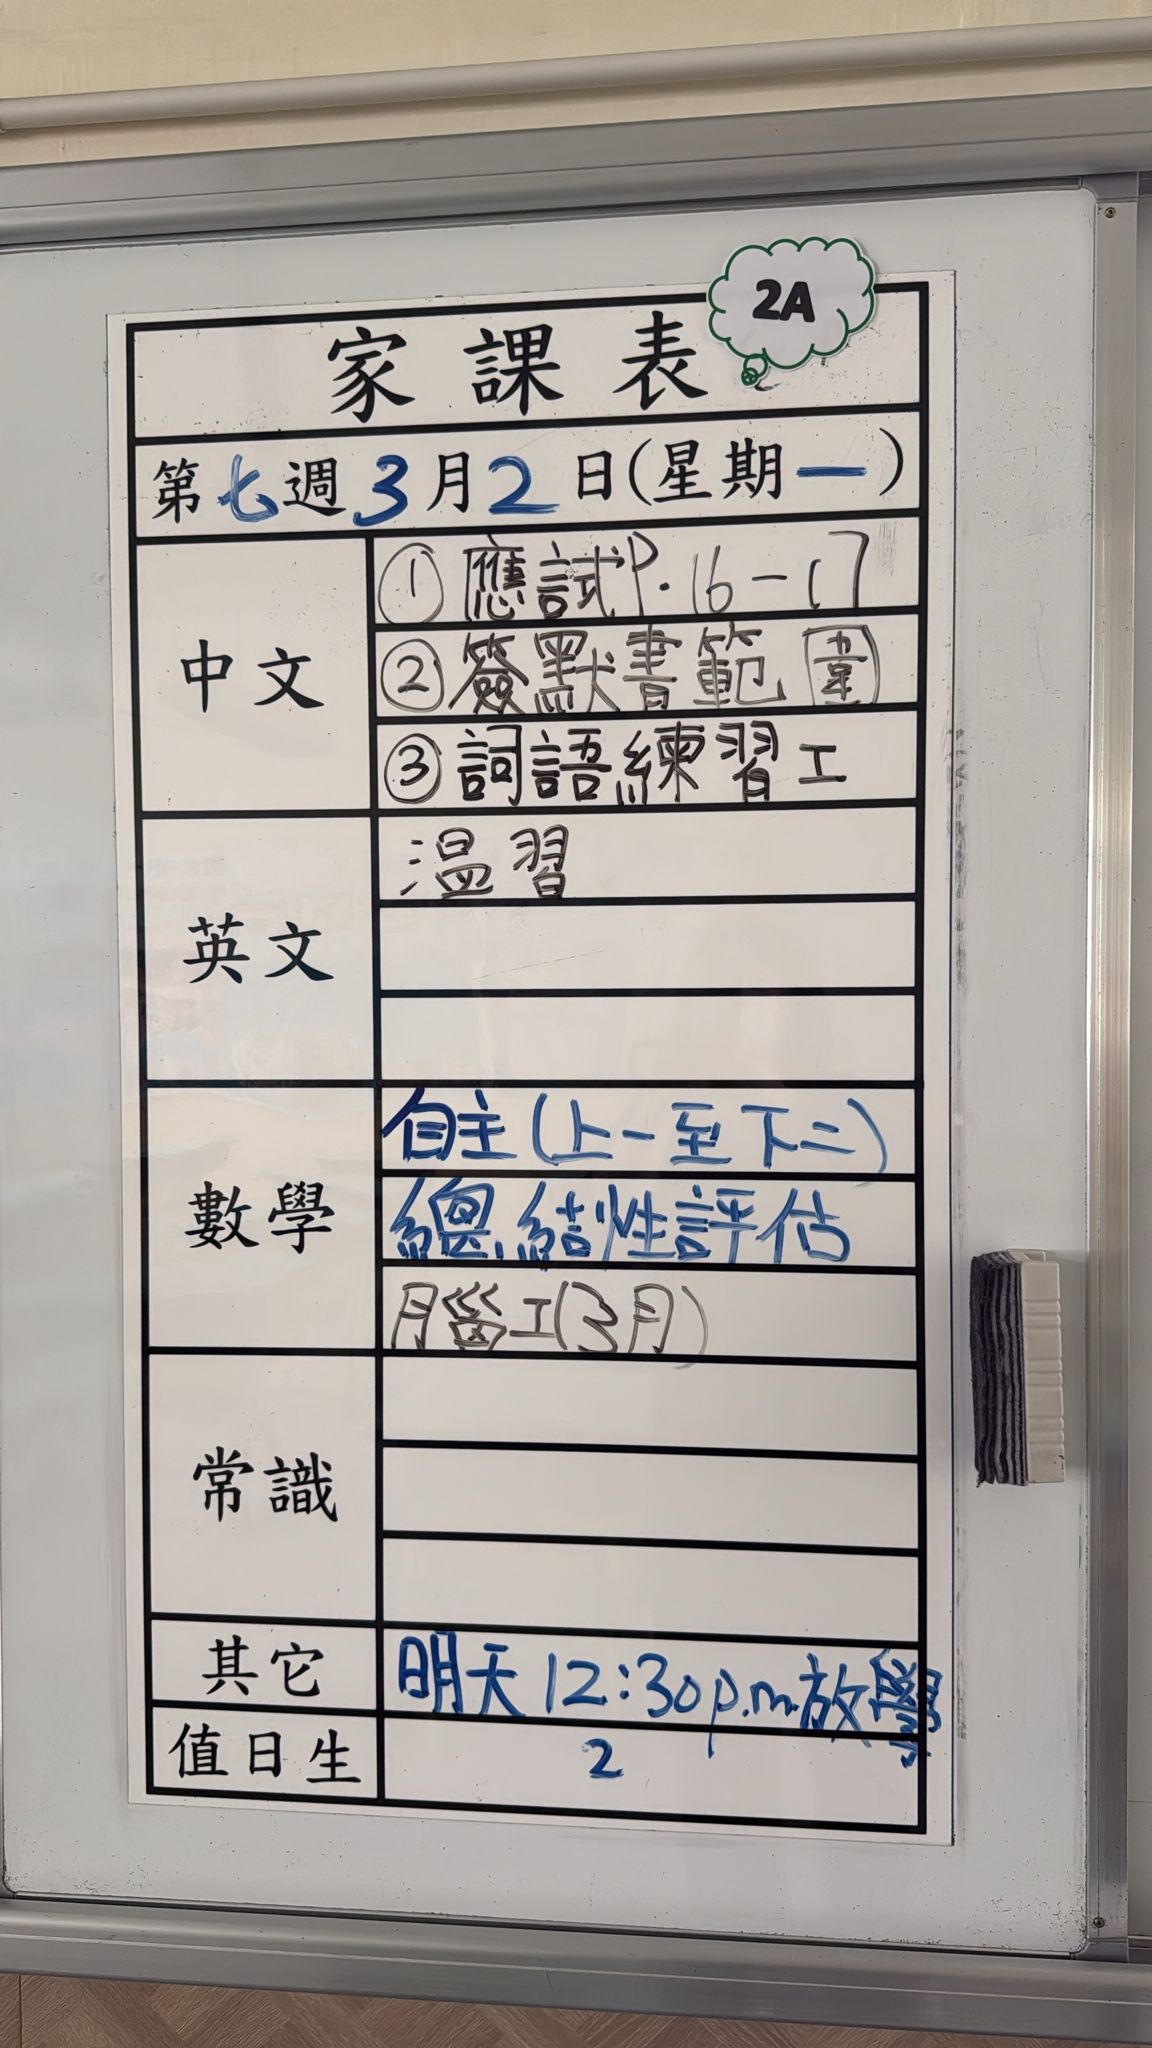 2A
家課表
第七週3月2日(星期一)
中文
①應試P.16-17
②簽默書範圍
③詞語練習工
英文
温習
數學
自主(上一至下二)
總結性評估
腦工(3月)
常識
其它
明天12:30p.m.放學
值日生
2